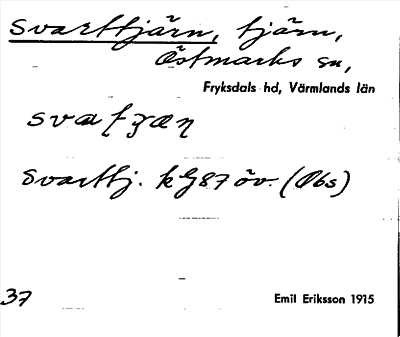 Svarttjärn, tjärn,
Östmarks sn,
Fryksdals hd, Värmlands län
svatʒæn
Svarttj. kG87 öv. (Obs)
37
Emil Eriksson 1915